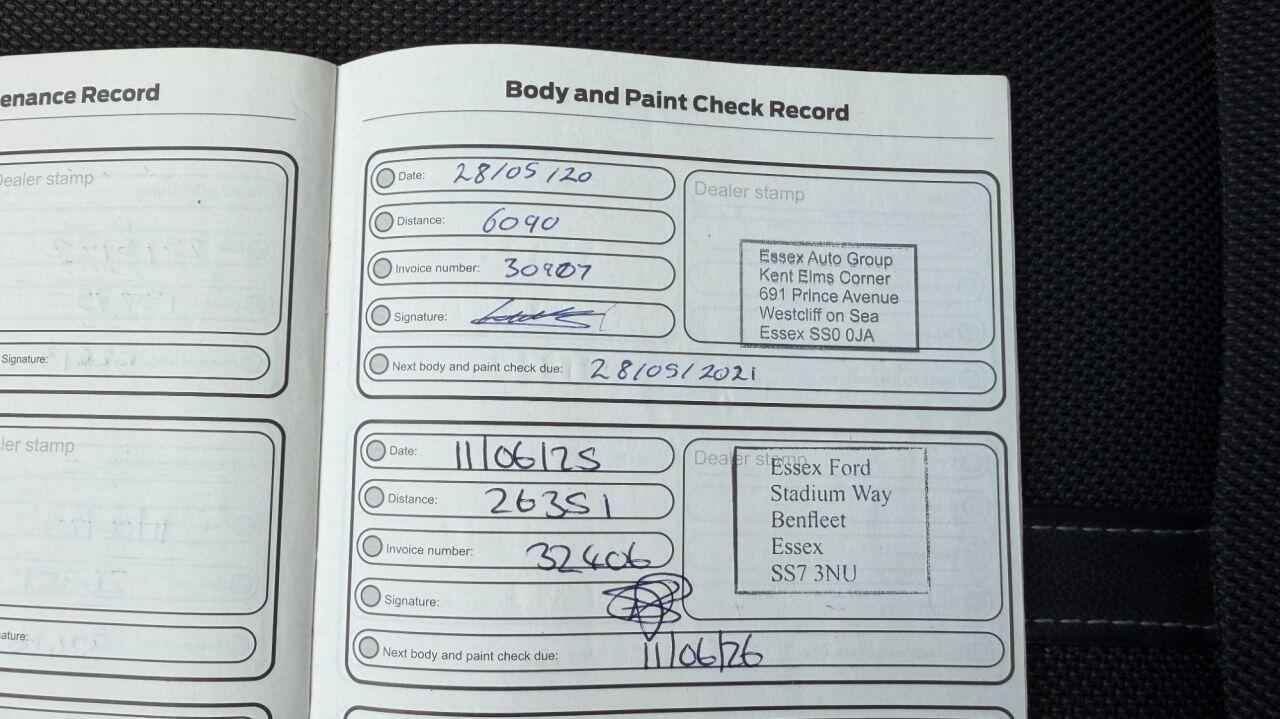 enance Record
Dealer stamp
Signature:
ler stamp
ature:
Body and Paint Check Record
Date: 28/05/20
Distance: 6090
Invoice number: 30907
Signature:
Next body and paint check due: 28/05/2021
Dealer stamp
Essex Auto Group
Kent Elms Corner
691 Prince Avenue
Westcliff on Sea
Essex SS0 0JA
Date: 11/06/25
Distance: 26351
Invoice number: 32406
Signature:
Next body and paint check due: 11/06/26
Dealer stamp
Essex Ford
Stadium Way
Benfleet
Essex
SS7 3NU